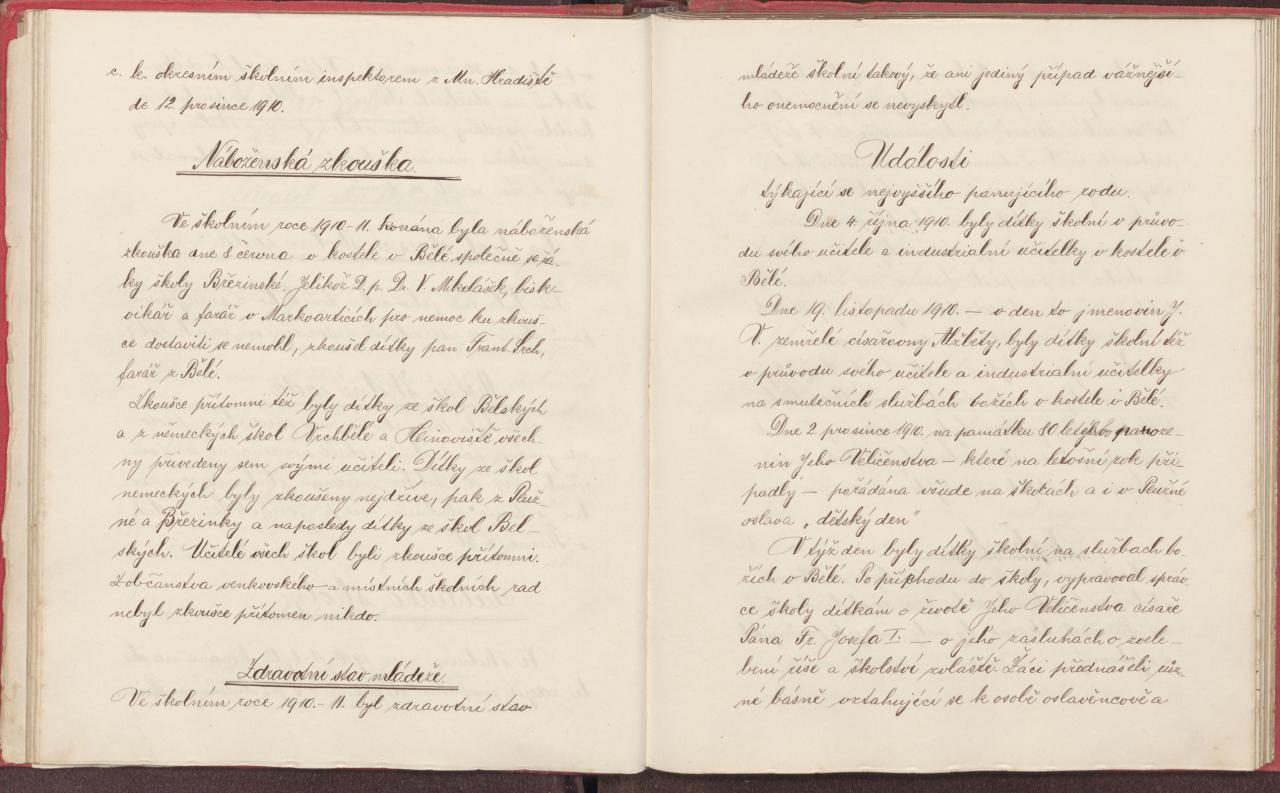 c. k. okresním školním inspektorem z Mn. Hradiště
de 12. prosince 1910.
Náboženská zkouška.
Ve školním roce 1910-11. konána byla náboženská
zkouška dne 8 června v kostele v Bělé společně se žá-
ky školy Březinské. Jelikož D. p. Dr. V. Mikolášek, bisk.
vikář a farář v Markvarticích pro nemoc ku zkouš-
ce dostaviti se nemohl, zkoušel dítky pan Frant. Srch,
farář z Bělé.
Zkoušce přítomni též byly dítky ze škol Bělských
a z německých škol Vrchbělé a Heinoviště všech-
ny přivedeny sem svými učiteli. Dítky ze škol
nemeckých byly zkoušeny nejdříve, pak z Pluž-
né a Březinky a naposledy dítky ze škol Bel-
ských. Učitelé všech škol byli zkoušce přítomni.
Z občanstva venkovského a místních školních rad
nebyl zkoušce přítomen nikdo.
Zdravotní stav mládeže.
Ve školním roce 1910.-11. byl zdravotní stav
mládeže školní takový, že ani jediný případ vážnější-
ho onemocnění se nevyskytl.
Události
týkající se nejvyššího panujícího rodu.
Dne 4. října 1910. byly dítky školní v průvo-
du svého učitele a industrialní učitelky v kostele v
Bělé.
Dne 19. listopadu 1910. — v den to jmenovin J.
V. zemřelé císařovny Alžběty, byly dítky školní též
v průvodu svého učitele a industrialní učitelky
na smutečních službách božích v kostele v Bělé.
Dne 2. prosince 1910. na památku 80 letých naroze-
nin Jeho Veličenstva — které na letošní rok při-
padly — pořádána všude na školách a i v Plužné
oslava „dětský den"
V týž den byly dítky školní na službách bo-
žích v Bělé. Po příchodu do školy, vypravoval správ-
ce školy dítkám o životě Jeho Veličenstva císaře
Pána Fr. Josefa I. — o jeho zásluhách o zvele-
bení říše a školství zvláště. Žáci přednášeli růz-
né básně vztahující se k osobě oslavencově a